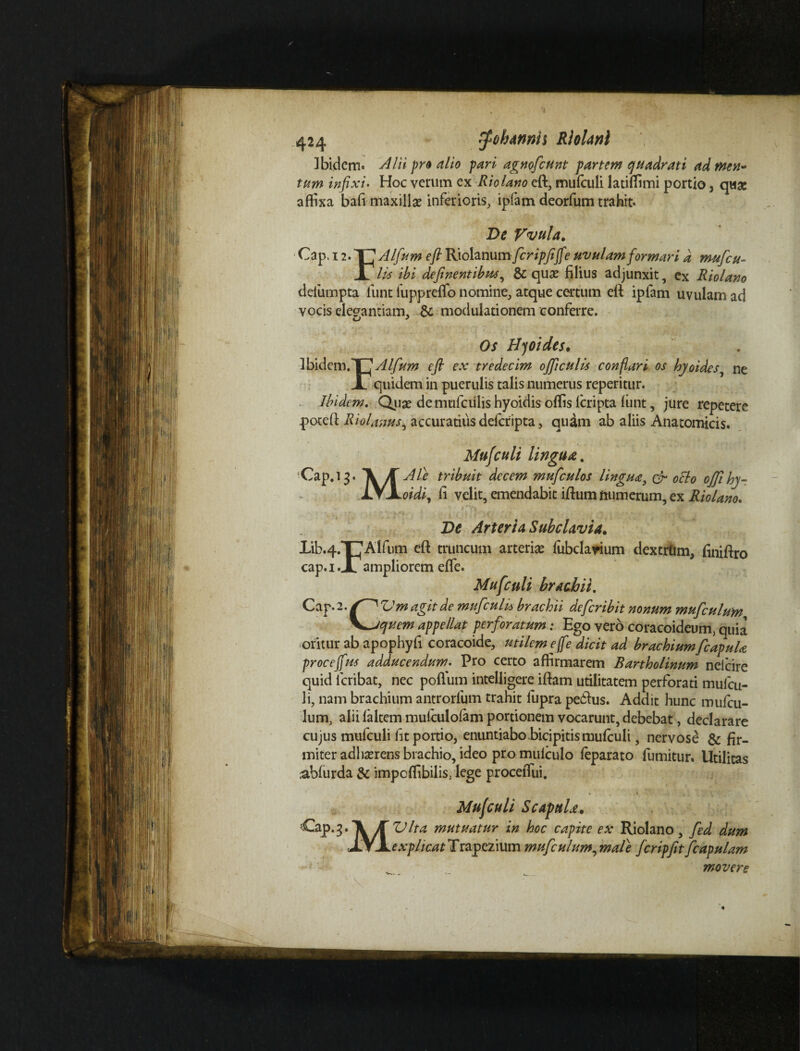 424 Johannis Riolani
Ibidem. Alii pro alio pari agnoſcunt partem quadrati ad men-
tum infixi. Hoc verum ex Riolano eſt, muſculi latiſſimi portio, quæ
affixa baſi maxillæ inferioris, ipſam deorſum trahit.
De Vvula.
Cap. 12. FAlſum eſt Riolanum ſcripſiſſe uvulam formari à muſcu-
lis ibi deſinentibus, & quæ filius adjunxit, ex Riolano
deſumpta ſunt ſuppreſſo nomine, atque certum eſt ipſam uvulam ad
vocis elegantiam, & modulationem conferre.
Os Hyoides.
Ibidem. FAlſum eſt ex tredecim oſſiculis conflari os hyoides, ne
quidem in puerulis talis numerus reperitur.
Ibidem. Quæ de muſculis hyoidis oſſis ſcripta ſunt, jure repetere
poteſt Riolanus, accuratiùs deſcripta, quàm ab aliis Anatomicis.
Muſculi linguæ.
Cap. 13. MAlè tribuit decem muſculos linguæ, & octo oſſi hy-
oidi, ſi velit, emendabit iſtum numerum, ex Riolano.
De Arteria Subclavia.
Lib. 4. FAlſum eſt truncum arteriæ ſubclavium dextrûm, ſiniſtro
cap. 1. ampliorem eſſe.
Muſculi brachii.
Cap. 2. CVm agit de muſculis brachii deſcribit nonum muſculum
quem appellat perforatum: Ego verò coracoideum, quia
oritur ab apophyſi coracoide, utilem eſſe dicit ad brachium ſcapulæ
proceſſus adducendum. Pro certo affirmarem Bartholinum neſcire
quid ſcribat, nec poſſum intelligere iſtam utilitatem perforati muſcu-
li, nam brachium antrorſùm trahit ſupra pectus. Addit hunc muſcu-
lum, alii ſaltem muſculoſam portionem vocarunt, debebat, declarare
cujus muſculi ſit portio, enuntiabo bicipitis muſculi, nervosè & fir-
miter adhærens brachio, ideo pro muſculo ſeparato ſumitur. Utilitas
abſurda & impoſſibilis, lege proceſſui.
Muſculi Scapulæ.
Cap. 3. MVlta mutuatur in hoc capite ex Riolano, ſed dum
explicat Trapezium muſculum, malè ſcripſit ſcapulam
movere